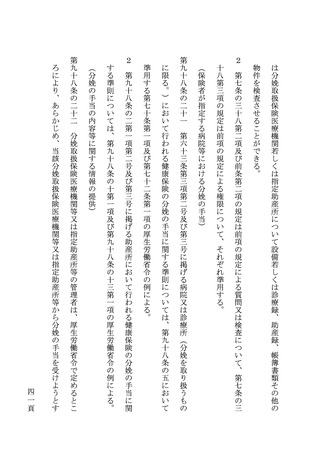 は分娩取扱保険医療機関若しくは指定助産所について設備若しくは診療録、助産録、帳簿書類その他の
物件を検査させることができる。
２　第七条の三十八第二項及び前条第二項の規定は前項の規定による質問又は検査について、第七条の三
十八第三項の規定は前項の規定による権限について、それぞれ準用する。
（保険者が指定する病院等における分娩の手当）
第九十八条の二十一　第六十三条第三項第二号及び第三号に掲げる病院又は診療所（分娩を取り扱うもの
に限る。）において行われる健康保険の分娩の手当に関する準則については、第九十八条の五において
準用する第七十条第一項及び第七十二条第一項の厚生労働省令の例による。
２　第九十八条の二第一項第二号及び第三号に掲げる助産所において行われる健康保険の分娩の手当に関
する準則については、第九十八条の十一第一項及び第九十八条の十三第一項の厚生労働省令の例による。
（分娩の手当の内容等に関する情報の提供）
第九十八条の二十二　分娩取扱保険医療機関等又は指定助産所等の管理者は、厚生労働省令で定めるとこ
ろにより、あらかじめ、当該分娩取扱保険医療機関等又は指定助産所等から分娩の手当を受けようとす
四一頁